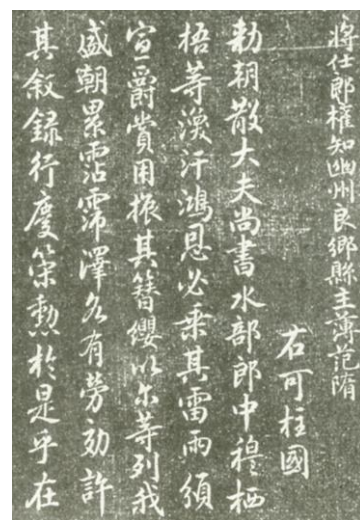 将仕郎權知幽州良鄉縣主薄范隋
右可柱國
勑朝散大夫尚書水部郎中穆栖
梧等渙汗鴻恩必乘其雷雨須
宣爵賞用振其簪纓以尔等列我
盛朝累霑霈澤各有勞効許
其叙録行慶策勲於是乎在